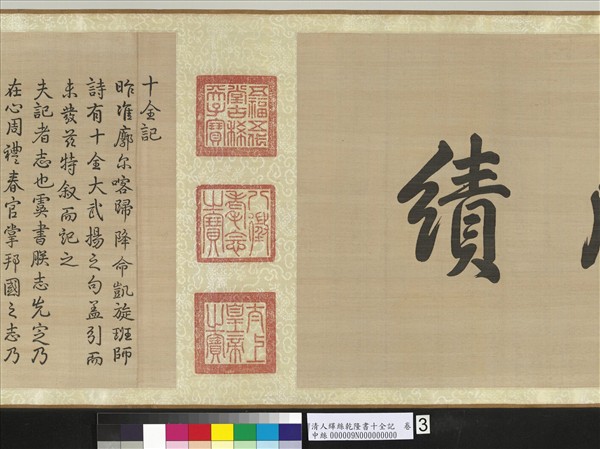 績
五福五代堂古稀天子寶
八徵耄念之寶
太上皇帝之寶
十全記
昨准廓尔喀歸降命凱旋班師
詩有十全大武揚之句盖引而
未發茲特叙而記之
夫記者志也虞書朕志先定乃
在心周禮春官掌邦國之志乃
清人緙絲乾隆書十全記 卷 3
中絲 000009N000000000